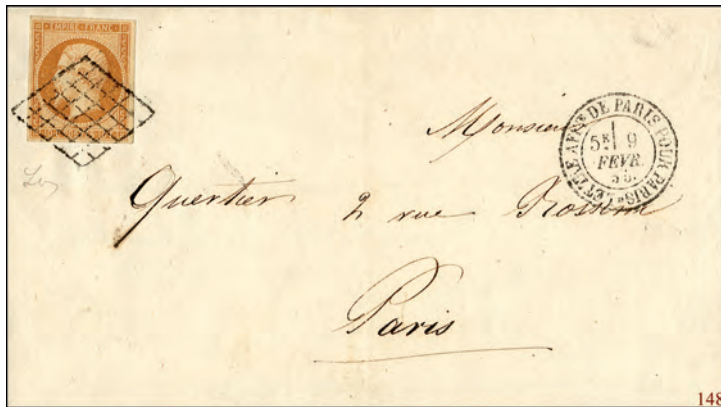 EMPIRE FRANC
LETTRE AFFie DE PARIS POUR PARIS
5E 9
FEVR.
55.
Monsieur
Quertier 2 rue Rossini
Paris
148